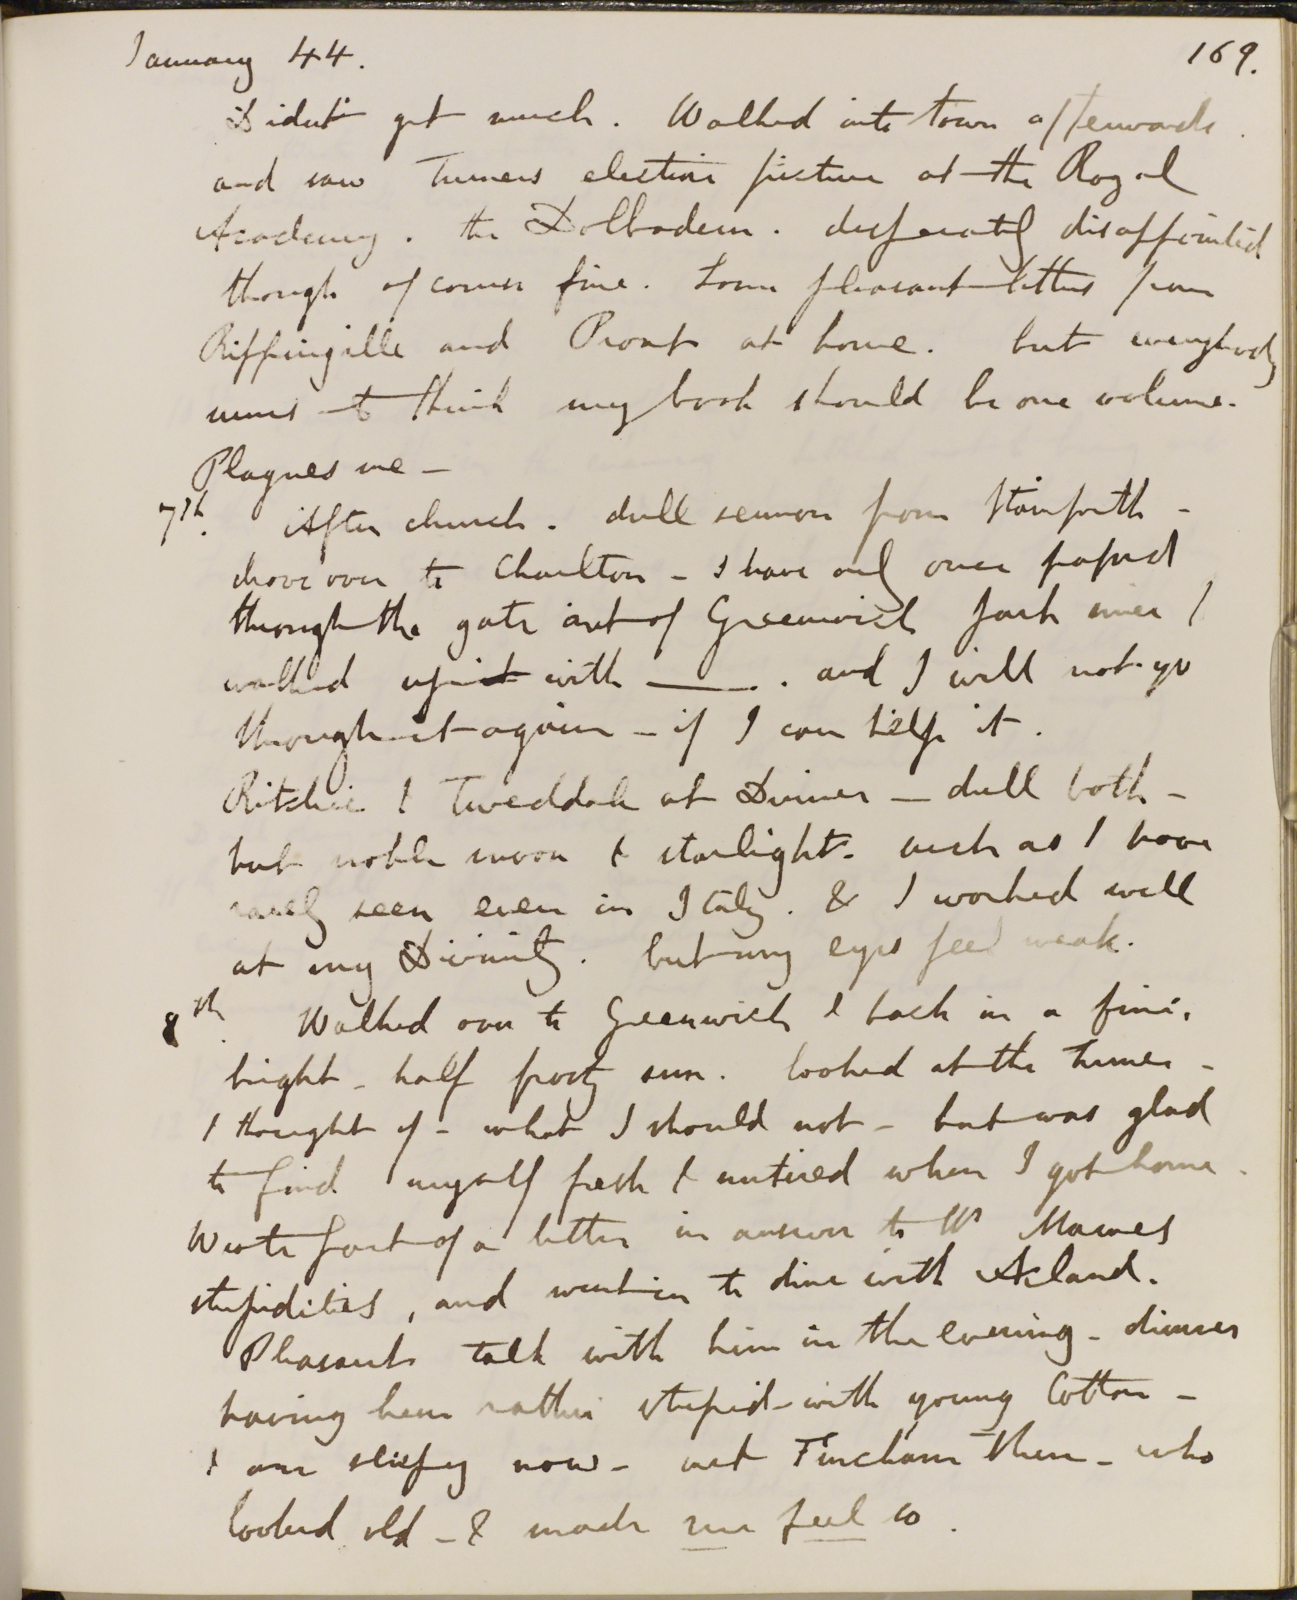 January 44.
169.
didn't get much. Walked into town afterwards.
and saw Turners election picture at the Royal
Academy. the Dolbadern. desperately disappointed
though of course fine. Some pleasant letters from
Rippingille and Prout at home. but everybody
seems to think my book should be one volume.
Plagues me —
7th. After church. dull sermon from Stainforth —
drove over to Charlton — I have only once passed
through the gate out of Greenwich park since I
walked up it with ——. and I will not go
through it again — if I can help it.
Ritchie & Tweddale at Dinner — dull both —
but noble moon & starlight. such as I have
rarely seen even in Italy. & I worked well
at my Divinity. but my eyes feel weak.
8th. Walked over to Greenwich & back in a fine,
bright - half frosty sun. looked at the Turner —
& thought of — what I should not — but was glad
to find myself fresh & untired when I got home.
Wrote part of a letter in answer to W Mawes
stupidities, and went in to dine with Acland.
Pleasant talk with him in the evening — dinner
having been rather stupid — with young Cotton —
& am sleepy now — met Fincham there — who
looked old — & made me feel so.